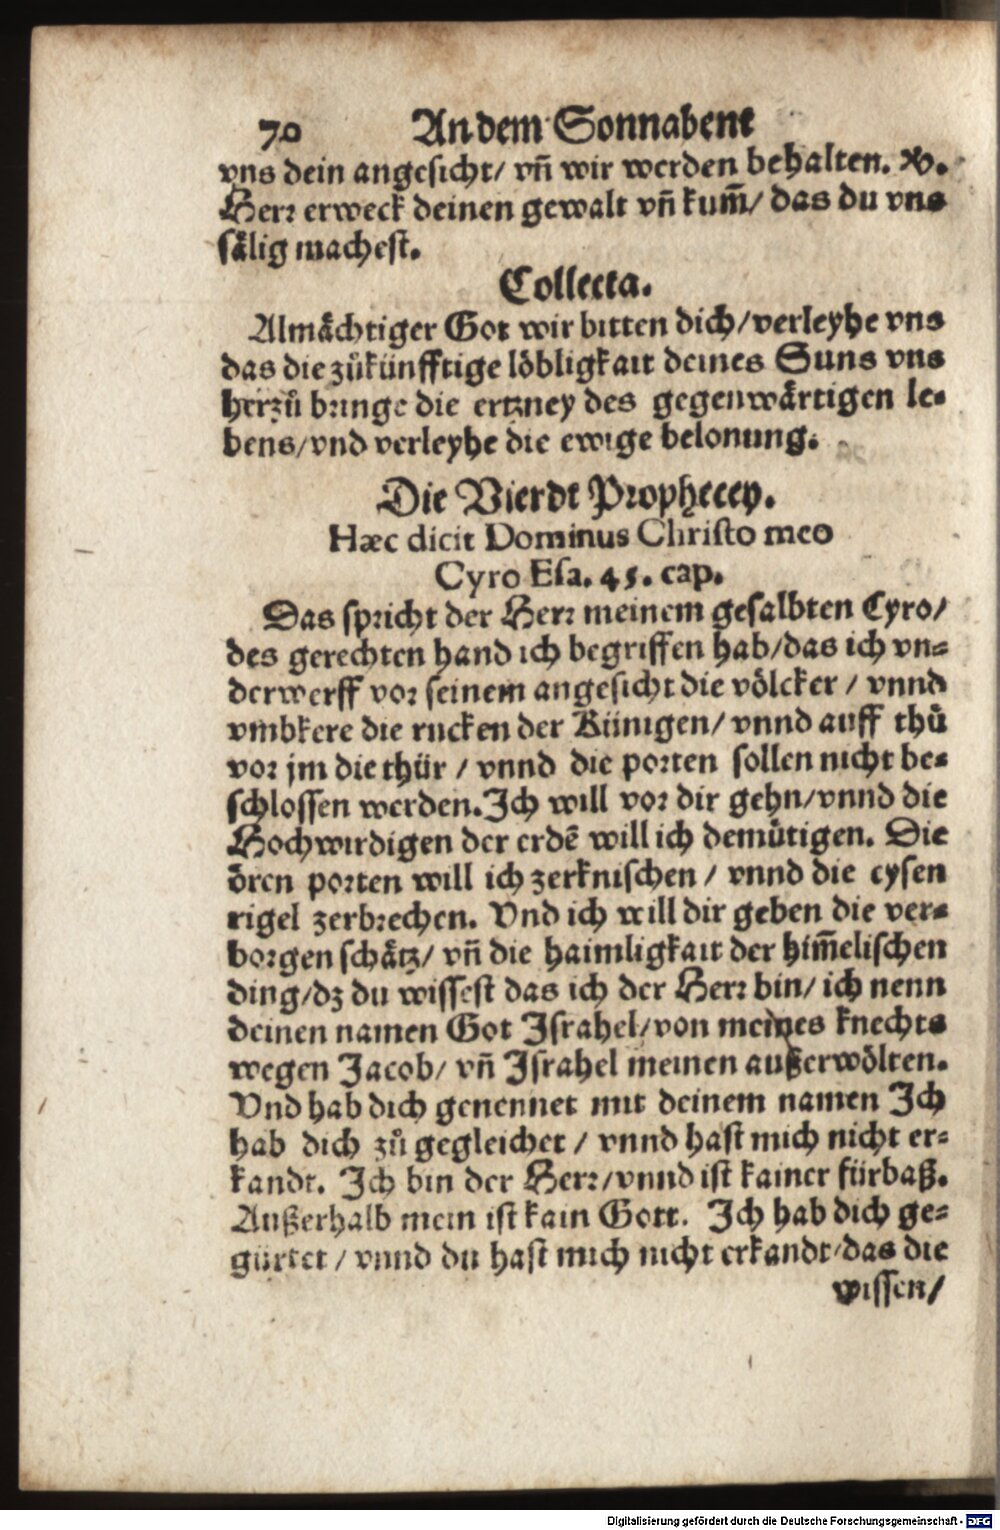 70 An dem Sonnabent
vns dein angesicht/ vñ wir werden behalten. V.
Herr erweck deinen gewalt vñ kum̃/ das du vns
sälig machest.
Collecta.
Almächtiger Got wir bitten dich/verleyhe vns
das die zůkünfftige löbligkait deines Suns vns
herzů bringe die ertzney des gegenwärtigen le-
bens/vnd verleyhe die ewige belonung.
Die Vierdt Prophecey.
Hæc dicit Dominus Christo meo
Cyro Esa. 45. cap.
Das spricht der Herr meinem gesalbten Cyro/
des gerechten hand ich begriffen hab/das ich vn-
derwerff vor seinem angesicht die völcker / vnnd
vmbkere die rucken der Künigen/ vnnd auff thů
vor jm die thür / vnnd die porten sollen nicht be-
schlossen werden. Ich will vor dir gehn/vnnd die
Hochwirdigen der erdẽ will ich demütigen. Die
ören porten will ich zerknischen / vnnd die eysen
rigel zerbrechen. Vnd ich will dir geben die ver-
borgen schätz/ vñ die haimligkait der him̃elischen
ding/dz du wissest das ich der Herr bin/ ich nenn
deinen namen Got Israhel/von meines knechts
wegen Jacob/ vñ Israhel meinen außerwölten.
Vnd hab dich genennet mit deinem namen Ich
hab dich zů gegleichet / vnnd hast mich nicht er-
kandt. Ich bin der Herr/vnnd ist kainer fürbaß.
Außerhalb mein ist kain Gott. Ich hab dich ge-
gürtet / vnnd du hast mich nicht erkandt/das die
wissen/
Digitalisierung gefördert durch die Deutsche Forschungsgemeinschaft - DFG